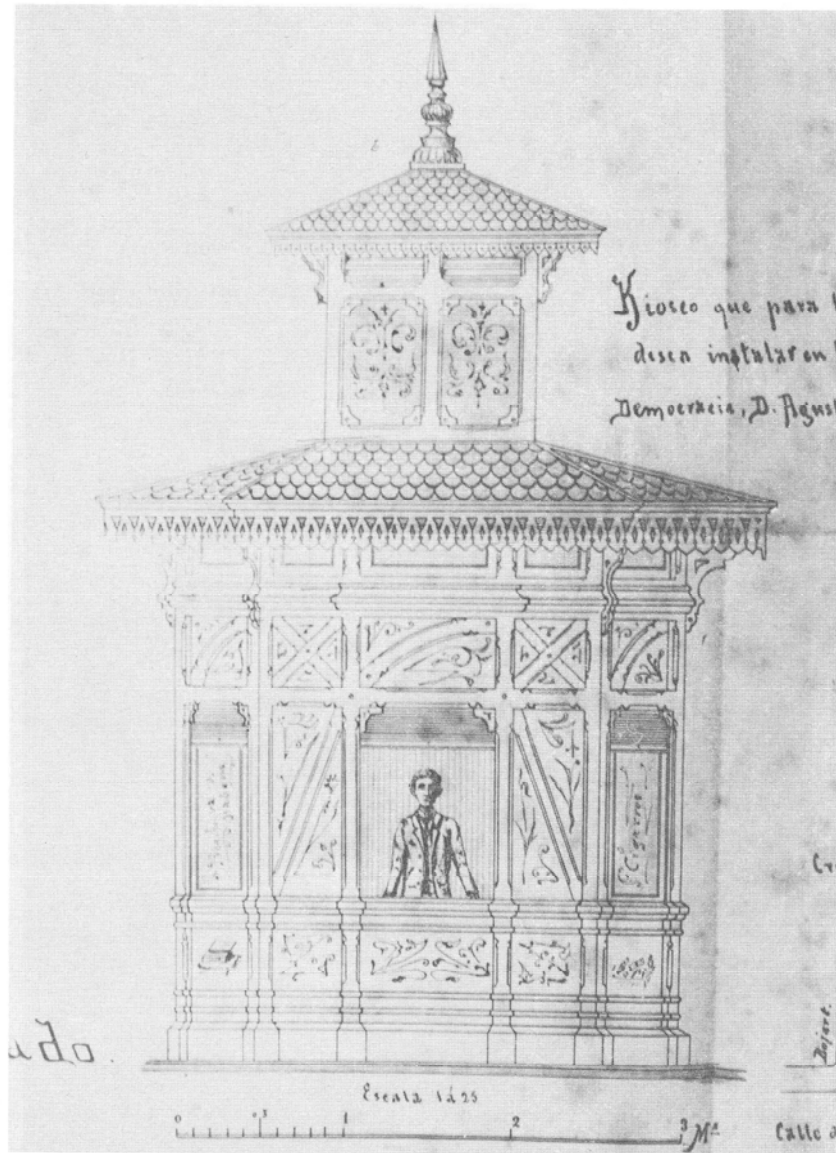 Kiosco que para
desea instalar en
Democracia, D. Agust
Cigarros
ado.
Bajort.
Escala 1 á 25
0 0,5 1 2 3 Mˢ
Calle d